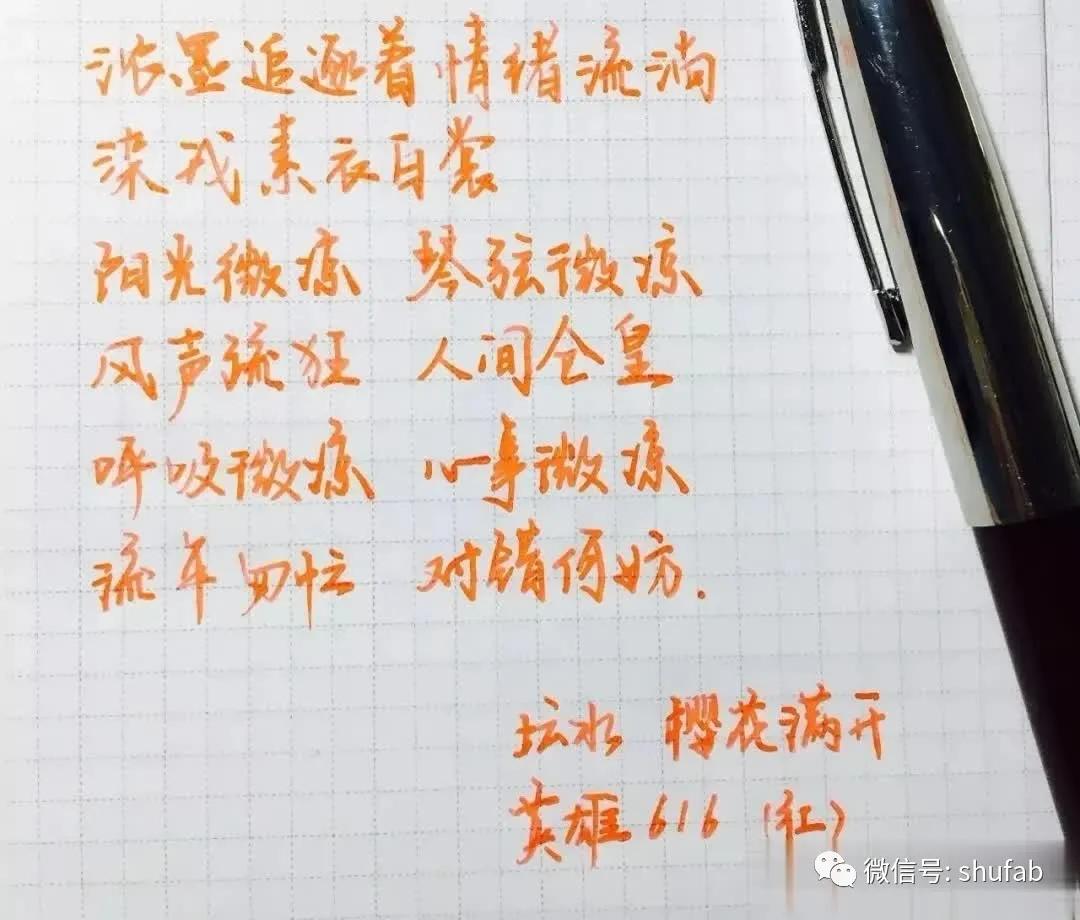 浓墨追逐着情绪流淌
染我素衣白裳
阳光微凉 琴弦微凉
风声疏狂 人间仓皇
呼吸微凉 心事微凉
流年匆忙 对错何妨.
坛水 樱花满开
英雄616 (红)
微信号: shufab